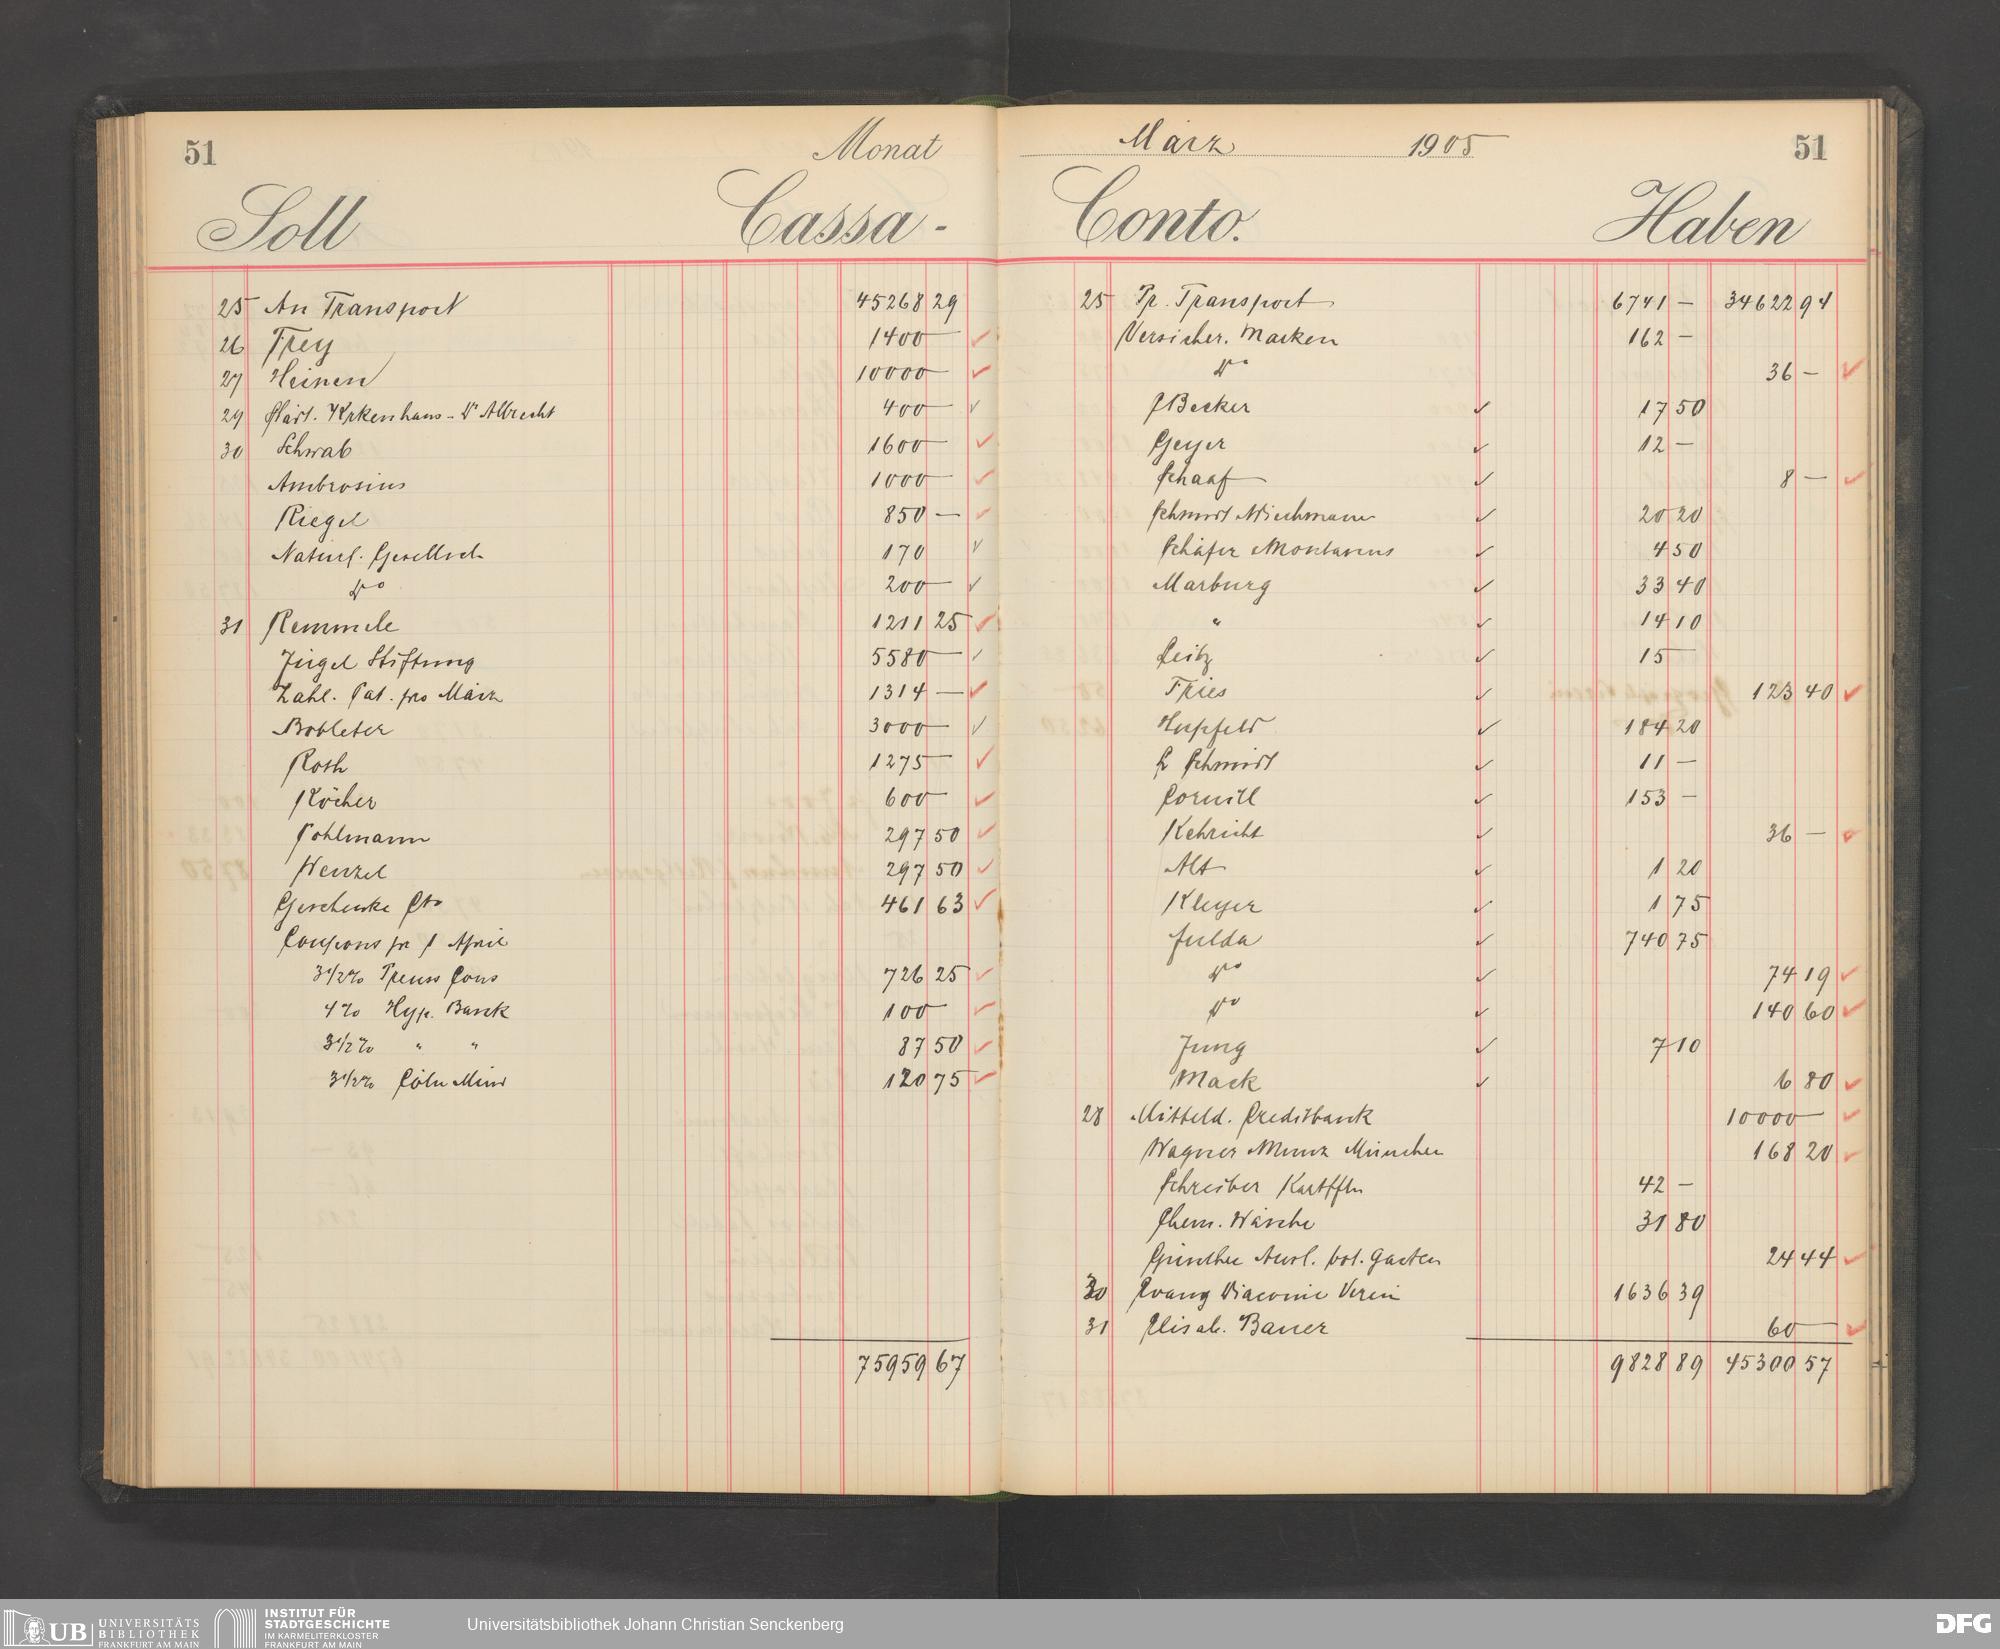 51 Monat März 1905 51
Soll Cassa- Conto. Haben
25 An Transport 45268 29
26 Frey 1400 —
27 Heinen 10000 —
29 Städt. Krkenhaus - Dr Albrecht 400 —
30 Schwab 1600 —
Ambrosius 1000 —
Riegel 850 —
Naturf. Gesellsch 170
do 200 —
31 Remmele 1211 25
Jügel Stiftung 5580 —
Zahl. Pat. pro März 1314 —
Bobleter 3000 —
Roth 1275 —
Köcher 600 —
Pohlmann 297 50
Wenzel 297 50
Geschenke Cto 461 63
Coupons pr 1 April
3 1/2 % Preuss Cons 726 25
4 % Hyp. Bank 100 —
3 1/2 % " " 87 50
3 1/2 % Cöln Mind 120 75
75959 67
25 Pr. Transport 6741 — 34622 94
Versicher. Marken 162 —
do 36 —
Becker 17 50
Geyer 12 —
Schaaf 8 —
Schmidt 20 20
Schäfer Montanus 4 50
Marburg 33 40
" 14 10
Leitz 15 —
Fries 123 40
Hupfeld 184 20
Schmidt 11 —
Cornill 153 —
Kehricht 36 —
Alt 1 20
Kleyer 1 75
Fulda 740 75
do 74 19
do 140 60
Jung 7 10
Mack 6 80
28 Mitteld. Creditbank 10000 —
Wagner München 168 20
Schreiber Kartffln 42 —
Chem. Wäsche 31 80
Günther Ausl. bot. Garten 24 44
30 Evang Diaconie Verein 1636 39
31 Elisab. Bauer 60 —
9828 89 45300 57
UB UNIVERSITÄTS
BIBLIOTHEK
FRANKFURT AM MAIN
INSTITUT FÜR
STADTGESCHICHTE
IM KARMELITERKLOSTER
FRANKFURT AM MAIN
Universitätsbibliothek Johann Christian Senckenberg
DFG